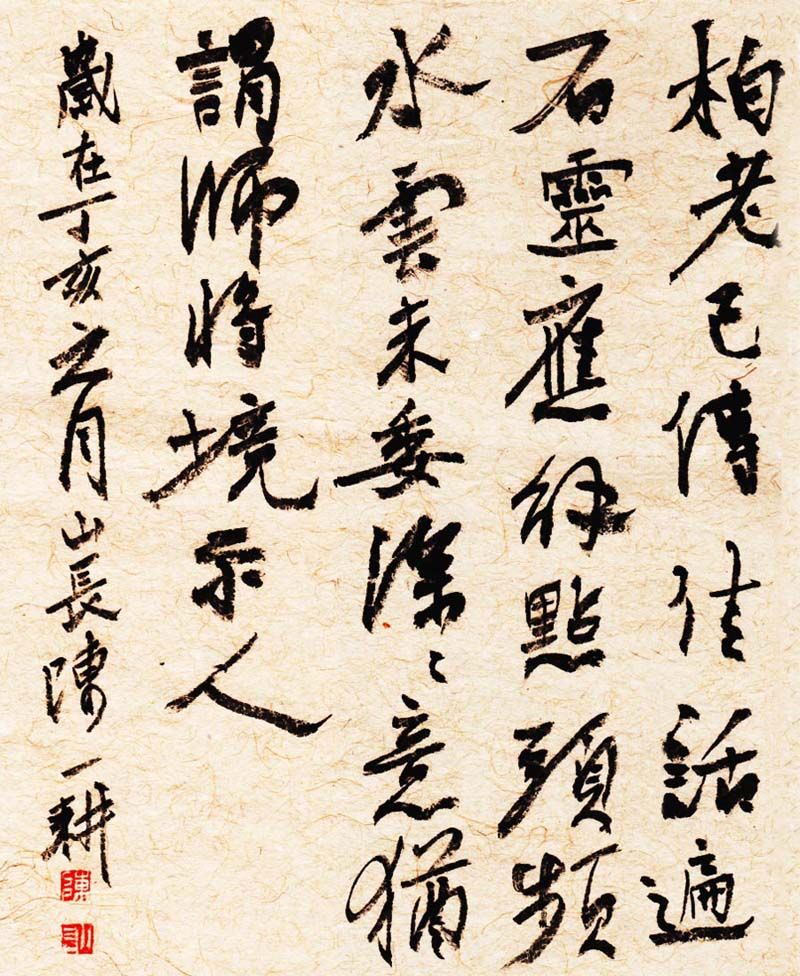 柏老已傳佳話遍
石靈應解點頭頻
水雲未委深〻意猶
謂師將境示人
歲在丁亥之月山長陳一耕